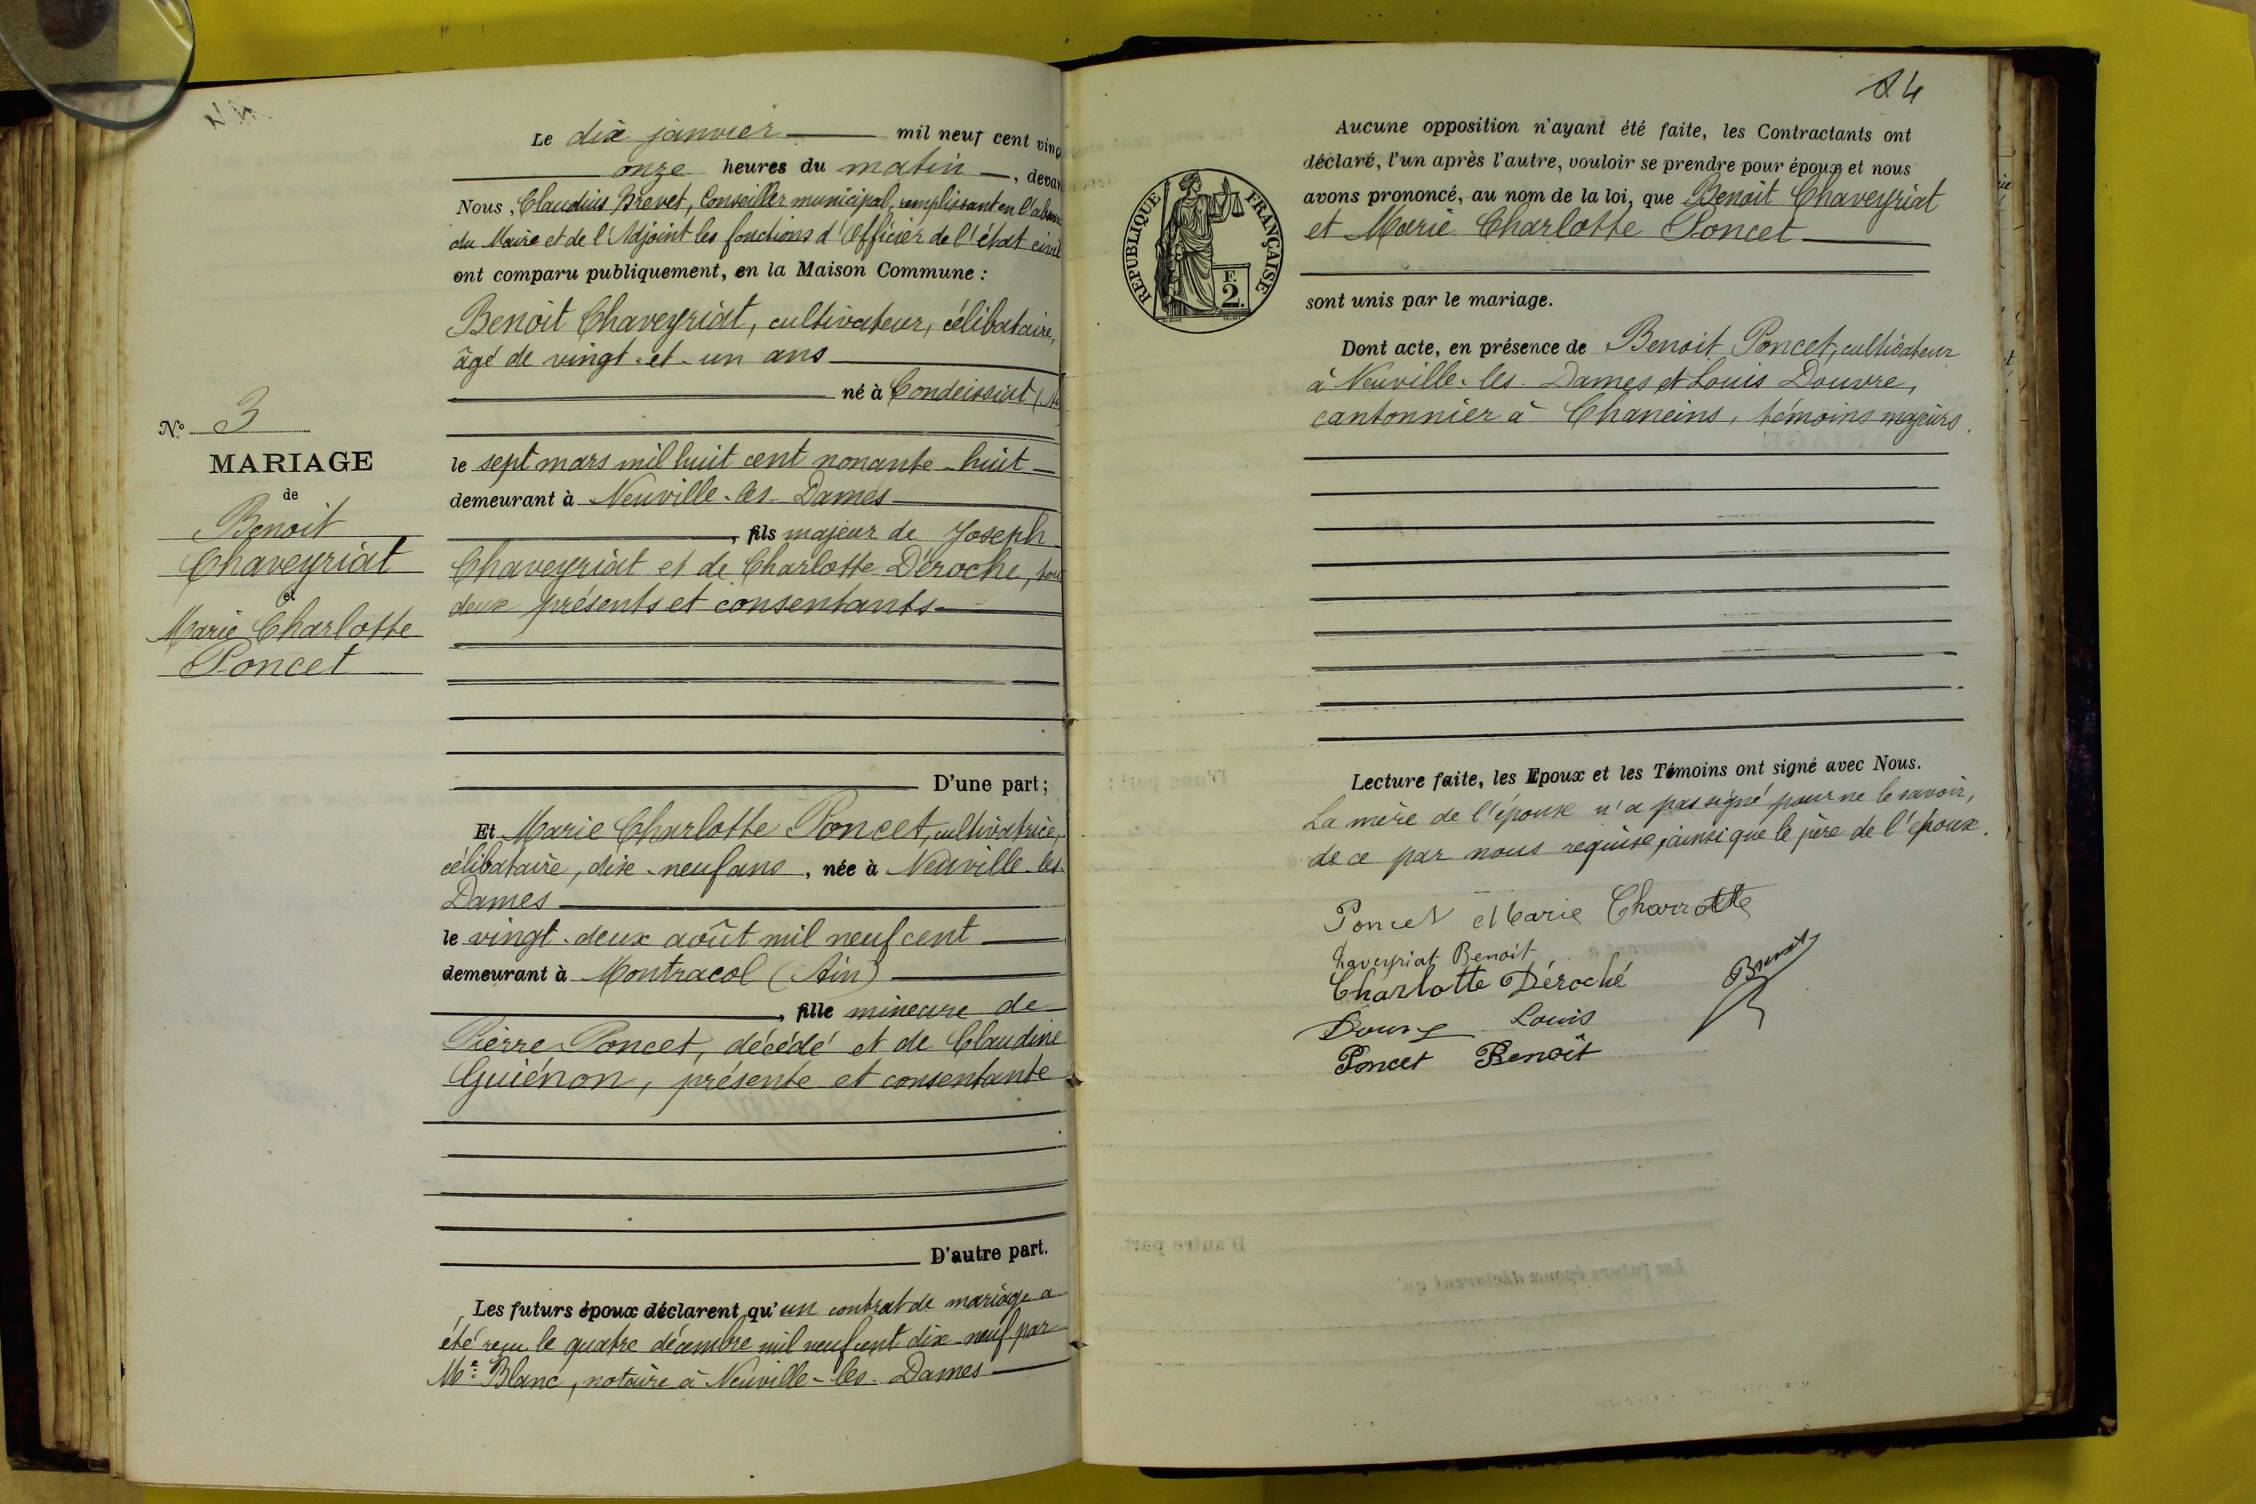 Le dix janvier mil neuf cent ving
onze heures du matin, devan
Nous, Claudius Brevet, Conseiller municipal, remplissant en l'absen
du Maire et de l'Adjoint les fonctions d'Officier de l'état civil
ont comparu publiquement, en la Maison Commune :
Benoit Chaveyriat, cultivateur, célibataire,
âgé de vingt-et-un ans
né à Condeissiat (Ai
N° 3
MARIAGE
de
Benoit
Chaveyriat
et
Marie Charlotte
Poncet
le sept mars mil huit cent nonante-huit
demeurant à Neuville-les-Dames
, fils majeur de Joseph
Chaveyriat et de Charlotte Déroche, tous
deux présents et consentants
D'une part ;
Et Marie Charlotte Poncet, cultivatrice,
célibataire, dix-neuf ans, née à Neuville-les-
Dames
le vingt-deux août mil neuf cent
demeurant à Montracol (Ain)
, fille mineure de
Pierre Poncet, décédé et de Claudine
Guiénon, présente et consentante
D'autre part.
Les futurs époux déclarent qu'un contrat de mariage a
été reçu le quatre décembre mil neuf cent dix-neuf par
Me Blanc, notaire à Neuville-les-Dames
84
Aucune opposition n'ayant été faite, les Contractants ont
déclaré, l'un après l'autre, vouloir se prendre pour époux et nous
avons prononcé, au nom de la loi, que Benoit Chaveyriat
et Marie Charlotte Poncet
REPUBLIQUE FRANÇAISE
F.
2.
sont unis par le mariage.
Dont acte, en présence de Benoit Poncet, cultivateur
à Neuville-les-Dames et Louis Douvre,
cantonnier à Chaneins, témoins majeurs.
Lecture faite, les Epoux et les Témoins ont signé avec Nous.
La mère de l'épouse n'a pas signé pour ne le savoir,
de ce par nous requise, ainsi que le père de l'époux.
Poncet Marie Charrotte
haveyriat Benoit
Charlotte Déroché
Brevet
Douvre Louis
Poncet Benoît